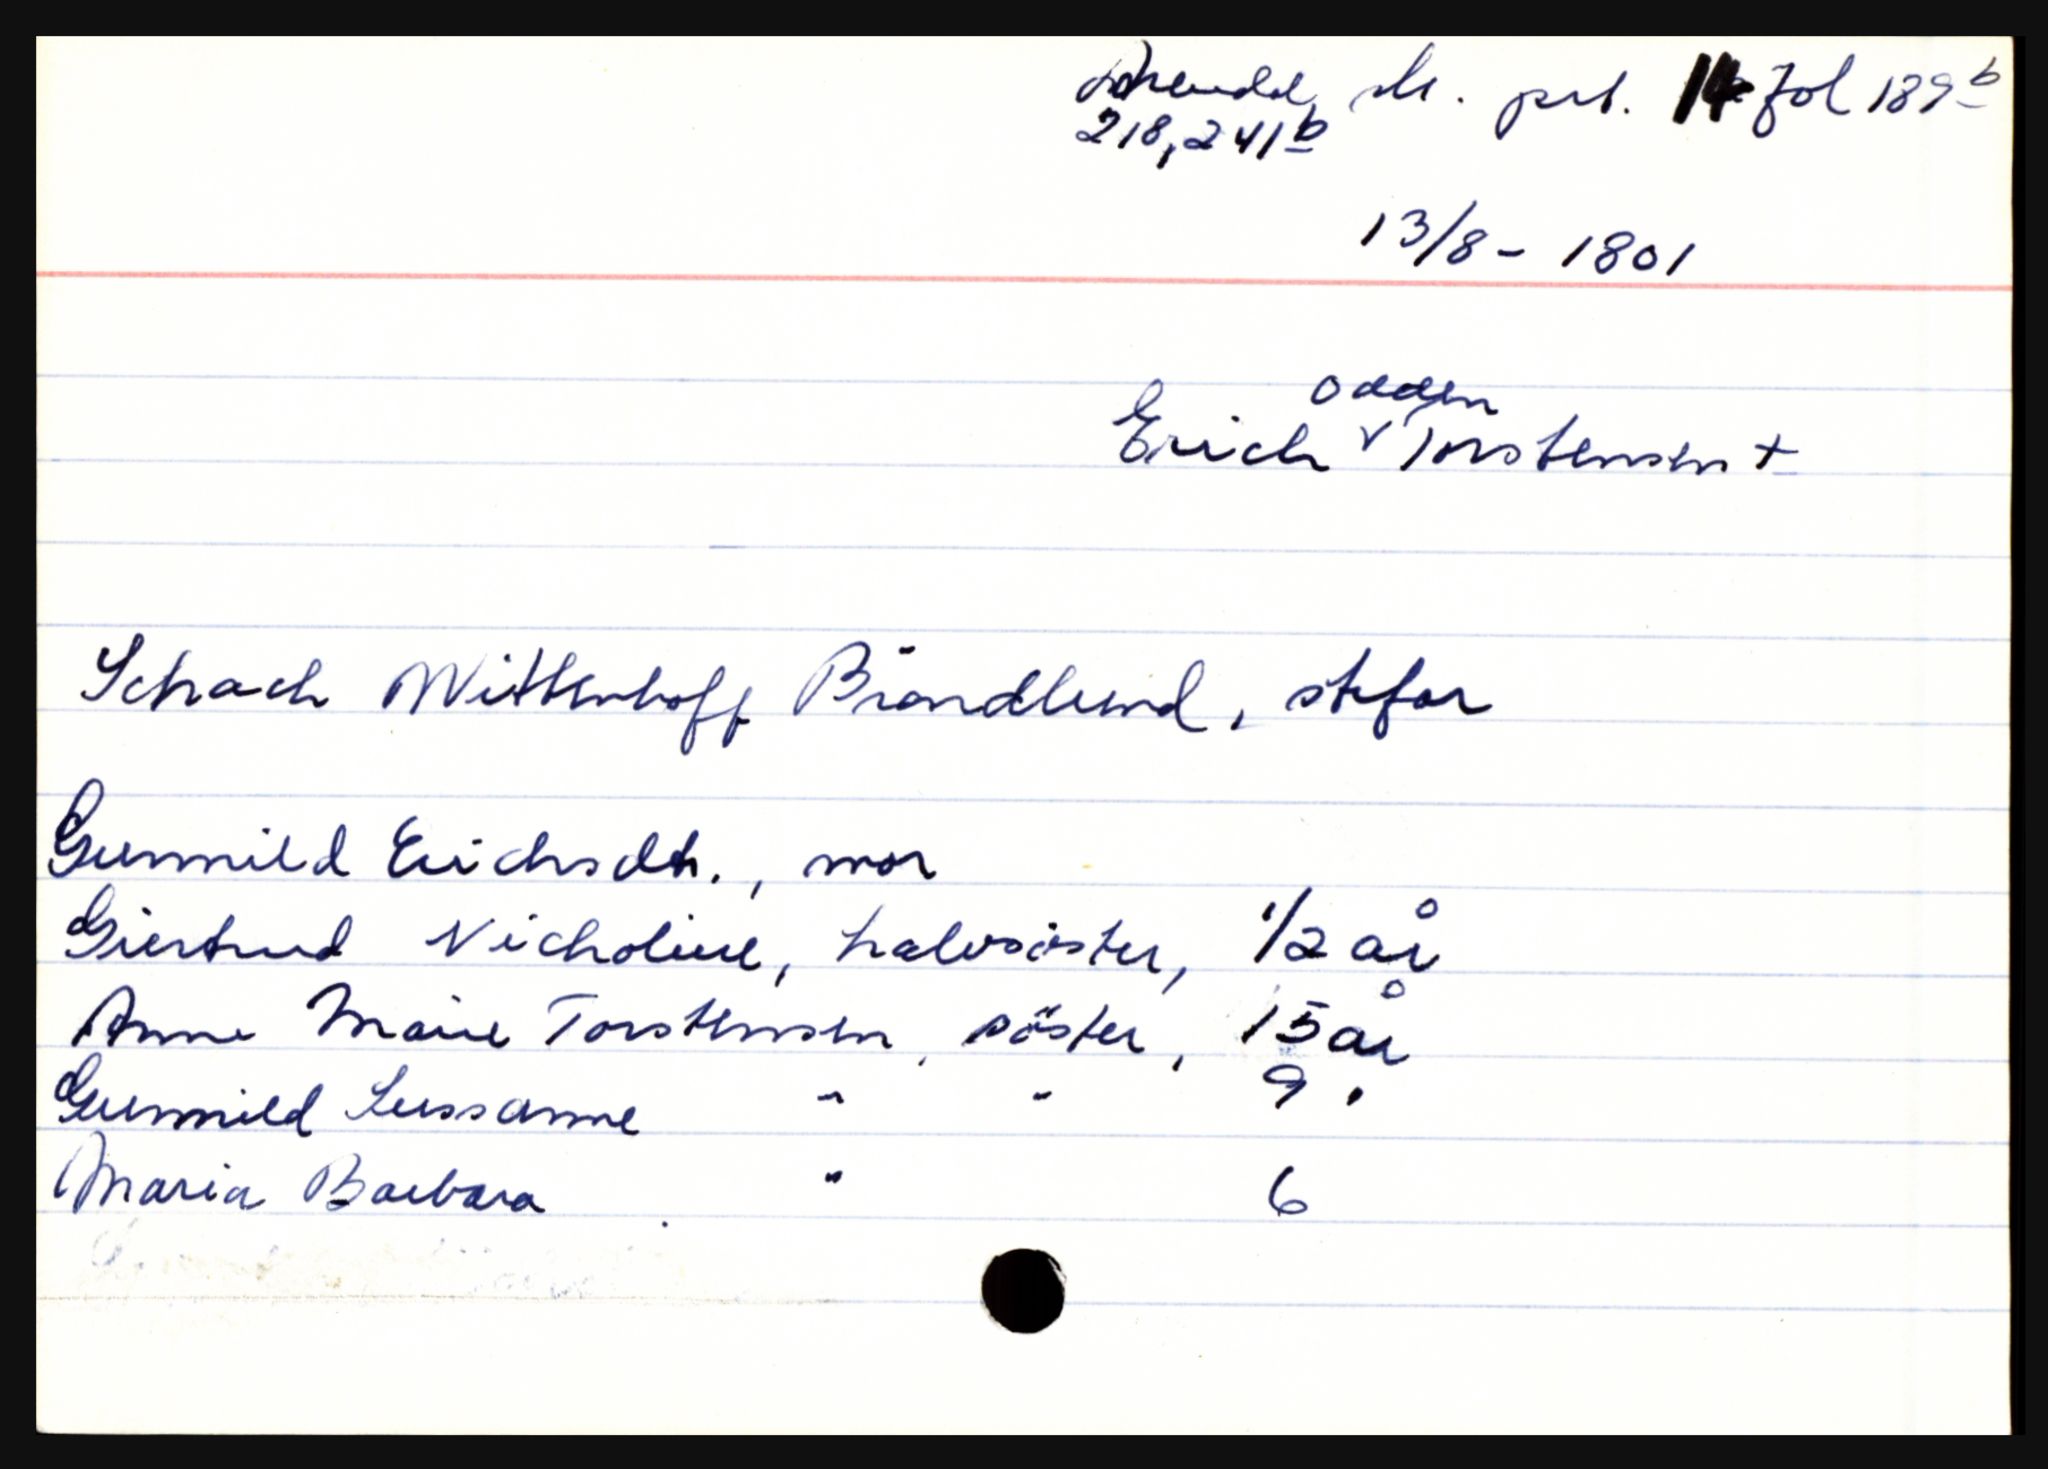 Arendal, sk. prt. 14 Fol 189 b
218, 241 b
13/8 - 1801
Odden
Erich v Torstensen +
Schach Wittenhoff Bröndlund, stefar
Gunnild Erichsdtr., mor
Giertrud Nicholine, halvsöster, 1/2 år
Anne Marie Torstensen, söster, 15 år
Gunnild Sussanne " " 9 "
Maria Barbara " 6